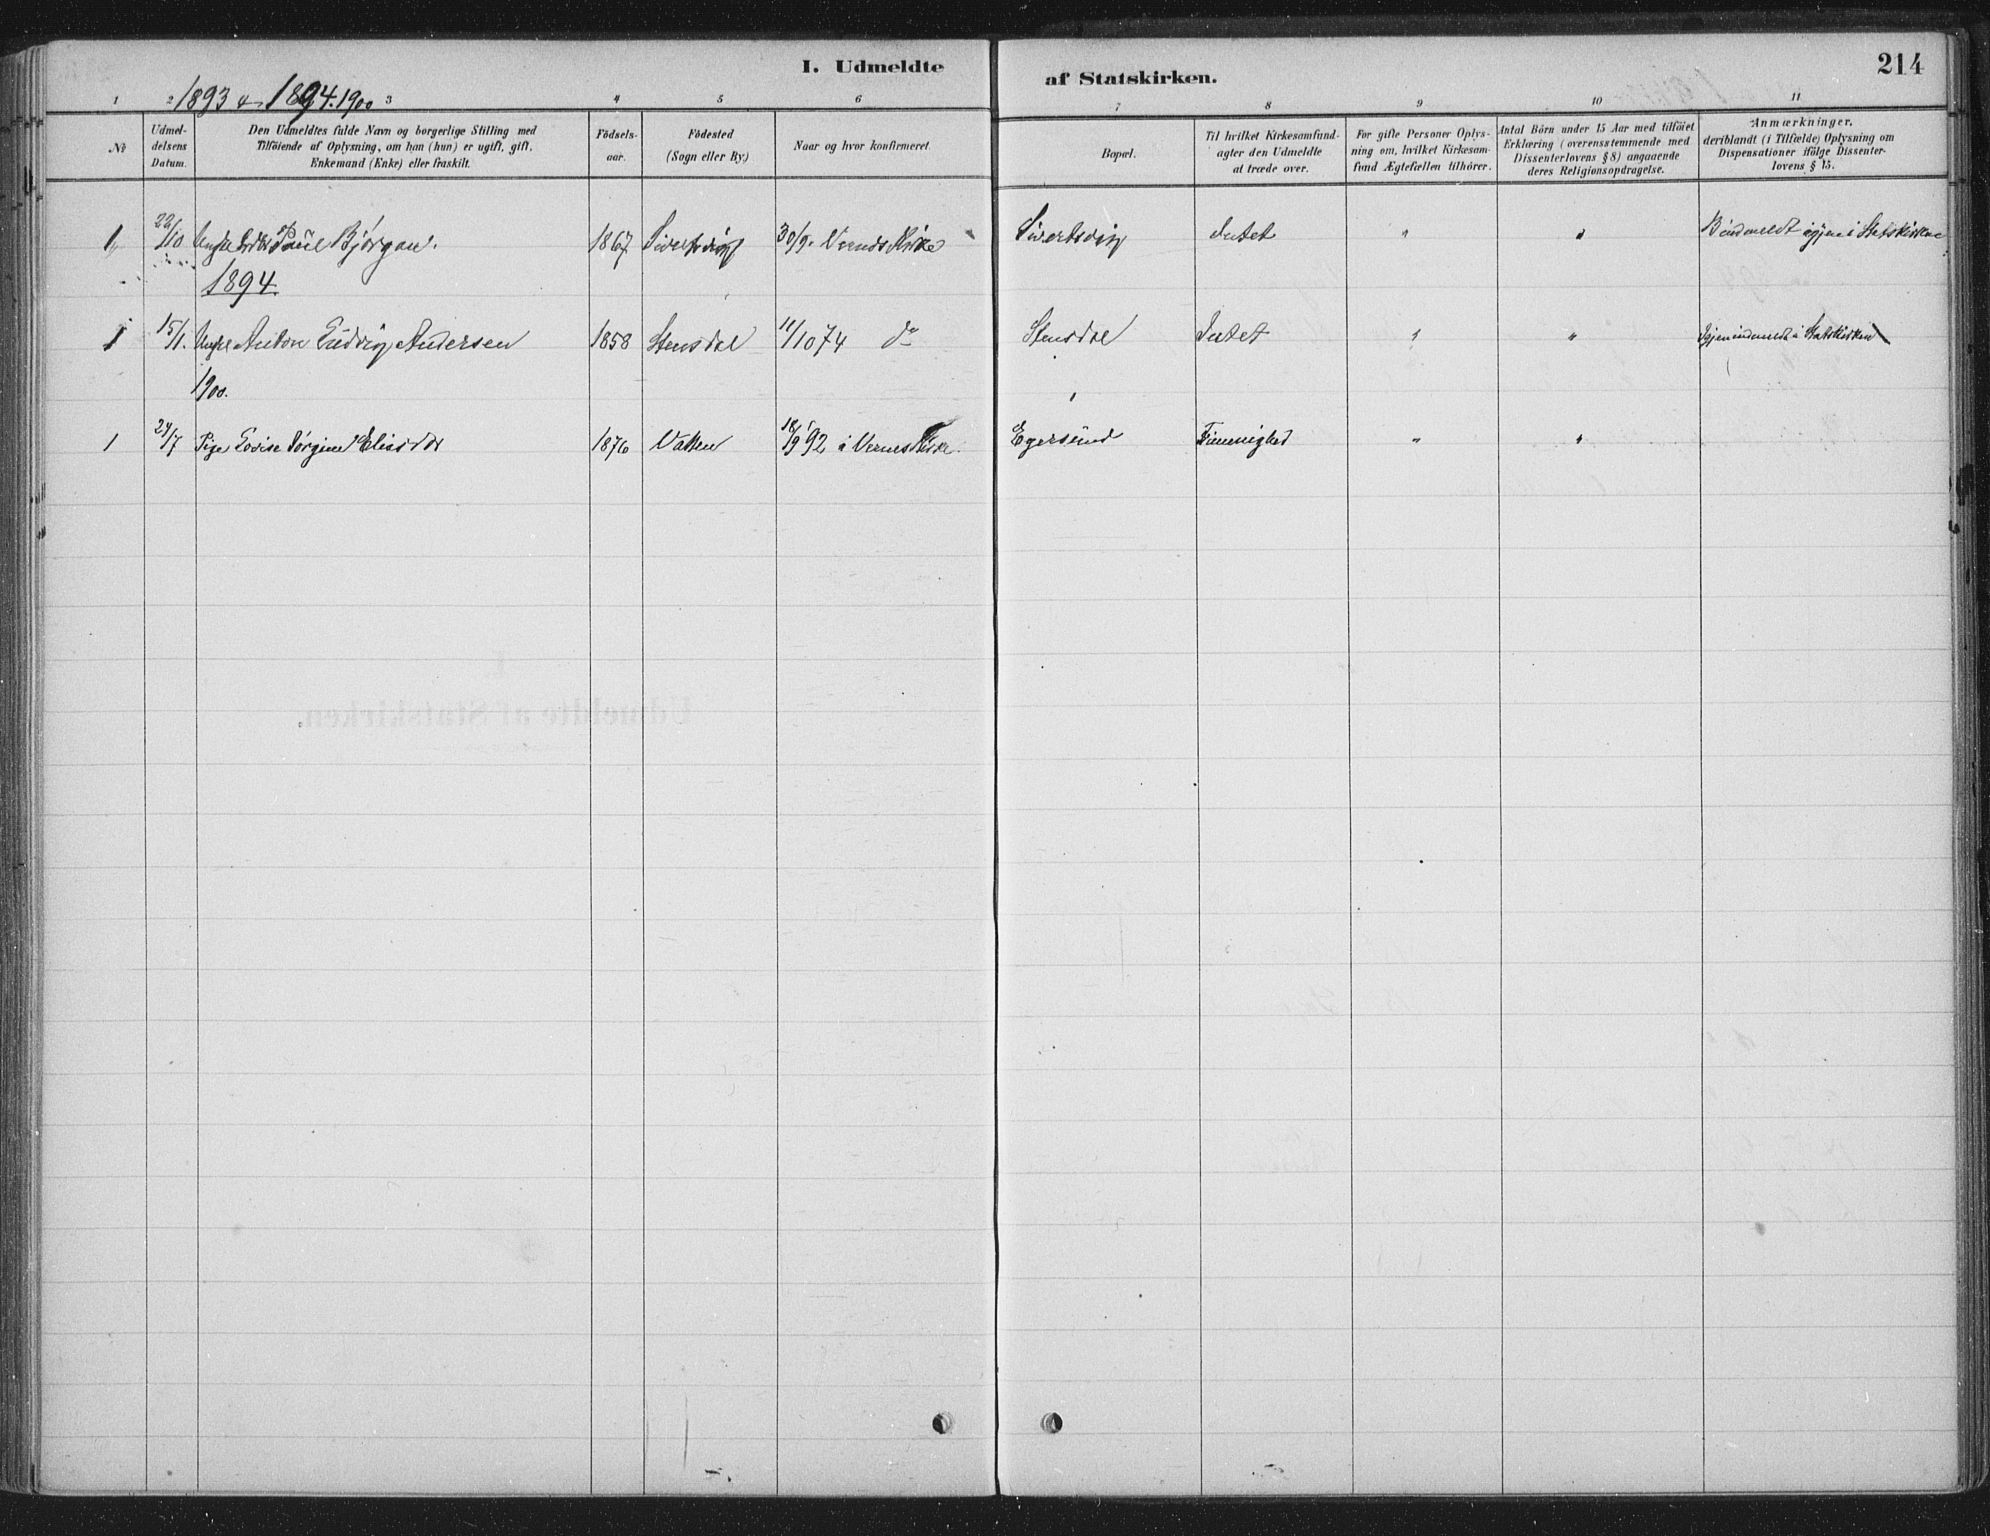 I. Udmeldte af Statskirken.
214
1893 & 1894. 1900
1 2 3 4 5 6 7 8 9 10 11
No
Udmel-
delsens
Datum.
Den Udmeldtes fulde Navn og borgerlige Stilling med
Tilföiende af Oplysning, om han (hun) er ugift, gift,
Enkemand (Enke) eller fraskilt.
Födsels-
aar.
Födested
(Sogn eller By)
Naar og hvor konfirmeret.
Bopæl.
Til hvilket Kirkesamfund-
agter den Udmeldte
at træde over.
For gifte Personer Oplys-
ning om, hvilket Kirkesam-
fund Ægtefællen tilhörer.
Antal Börn under 15 Aar med tilföiet
Erklæring (overensstemmende med
Dissenterlovens § 8) angaaende
deres Religionsopdragelse.
Anmærkninger,
deriblandt (i Tilfælde) Oplysning om
Dispensationer ifölge Dissenter-
lovens § 15.
1 22/10 Paul Bjørgan. 1867 Sivertsvig 30/9 Kirke Sivertsvig Intet " " indmeldt igjen i Statskirken
1894
1 15/1. Ungkl Anton Ludvig Andersen 1858 Stensdal 11/10 74 do Stensdal Intet " " Igjen indmeldt i Statskirken
1900.
1 24/7 Pige Lovise Jørgine Elisdtr 1876 Vatten 18/9 92 i Vernes Kirke. Egersund Frimenighed " "